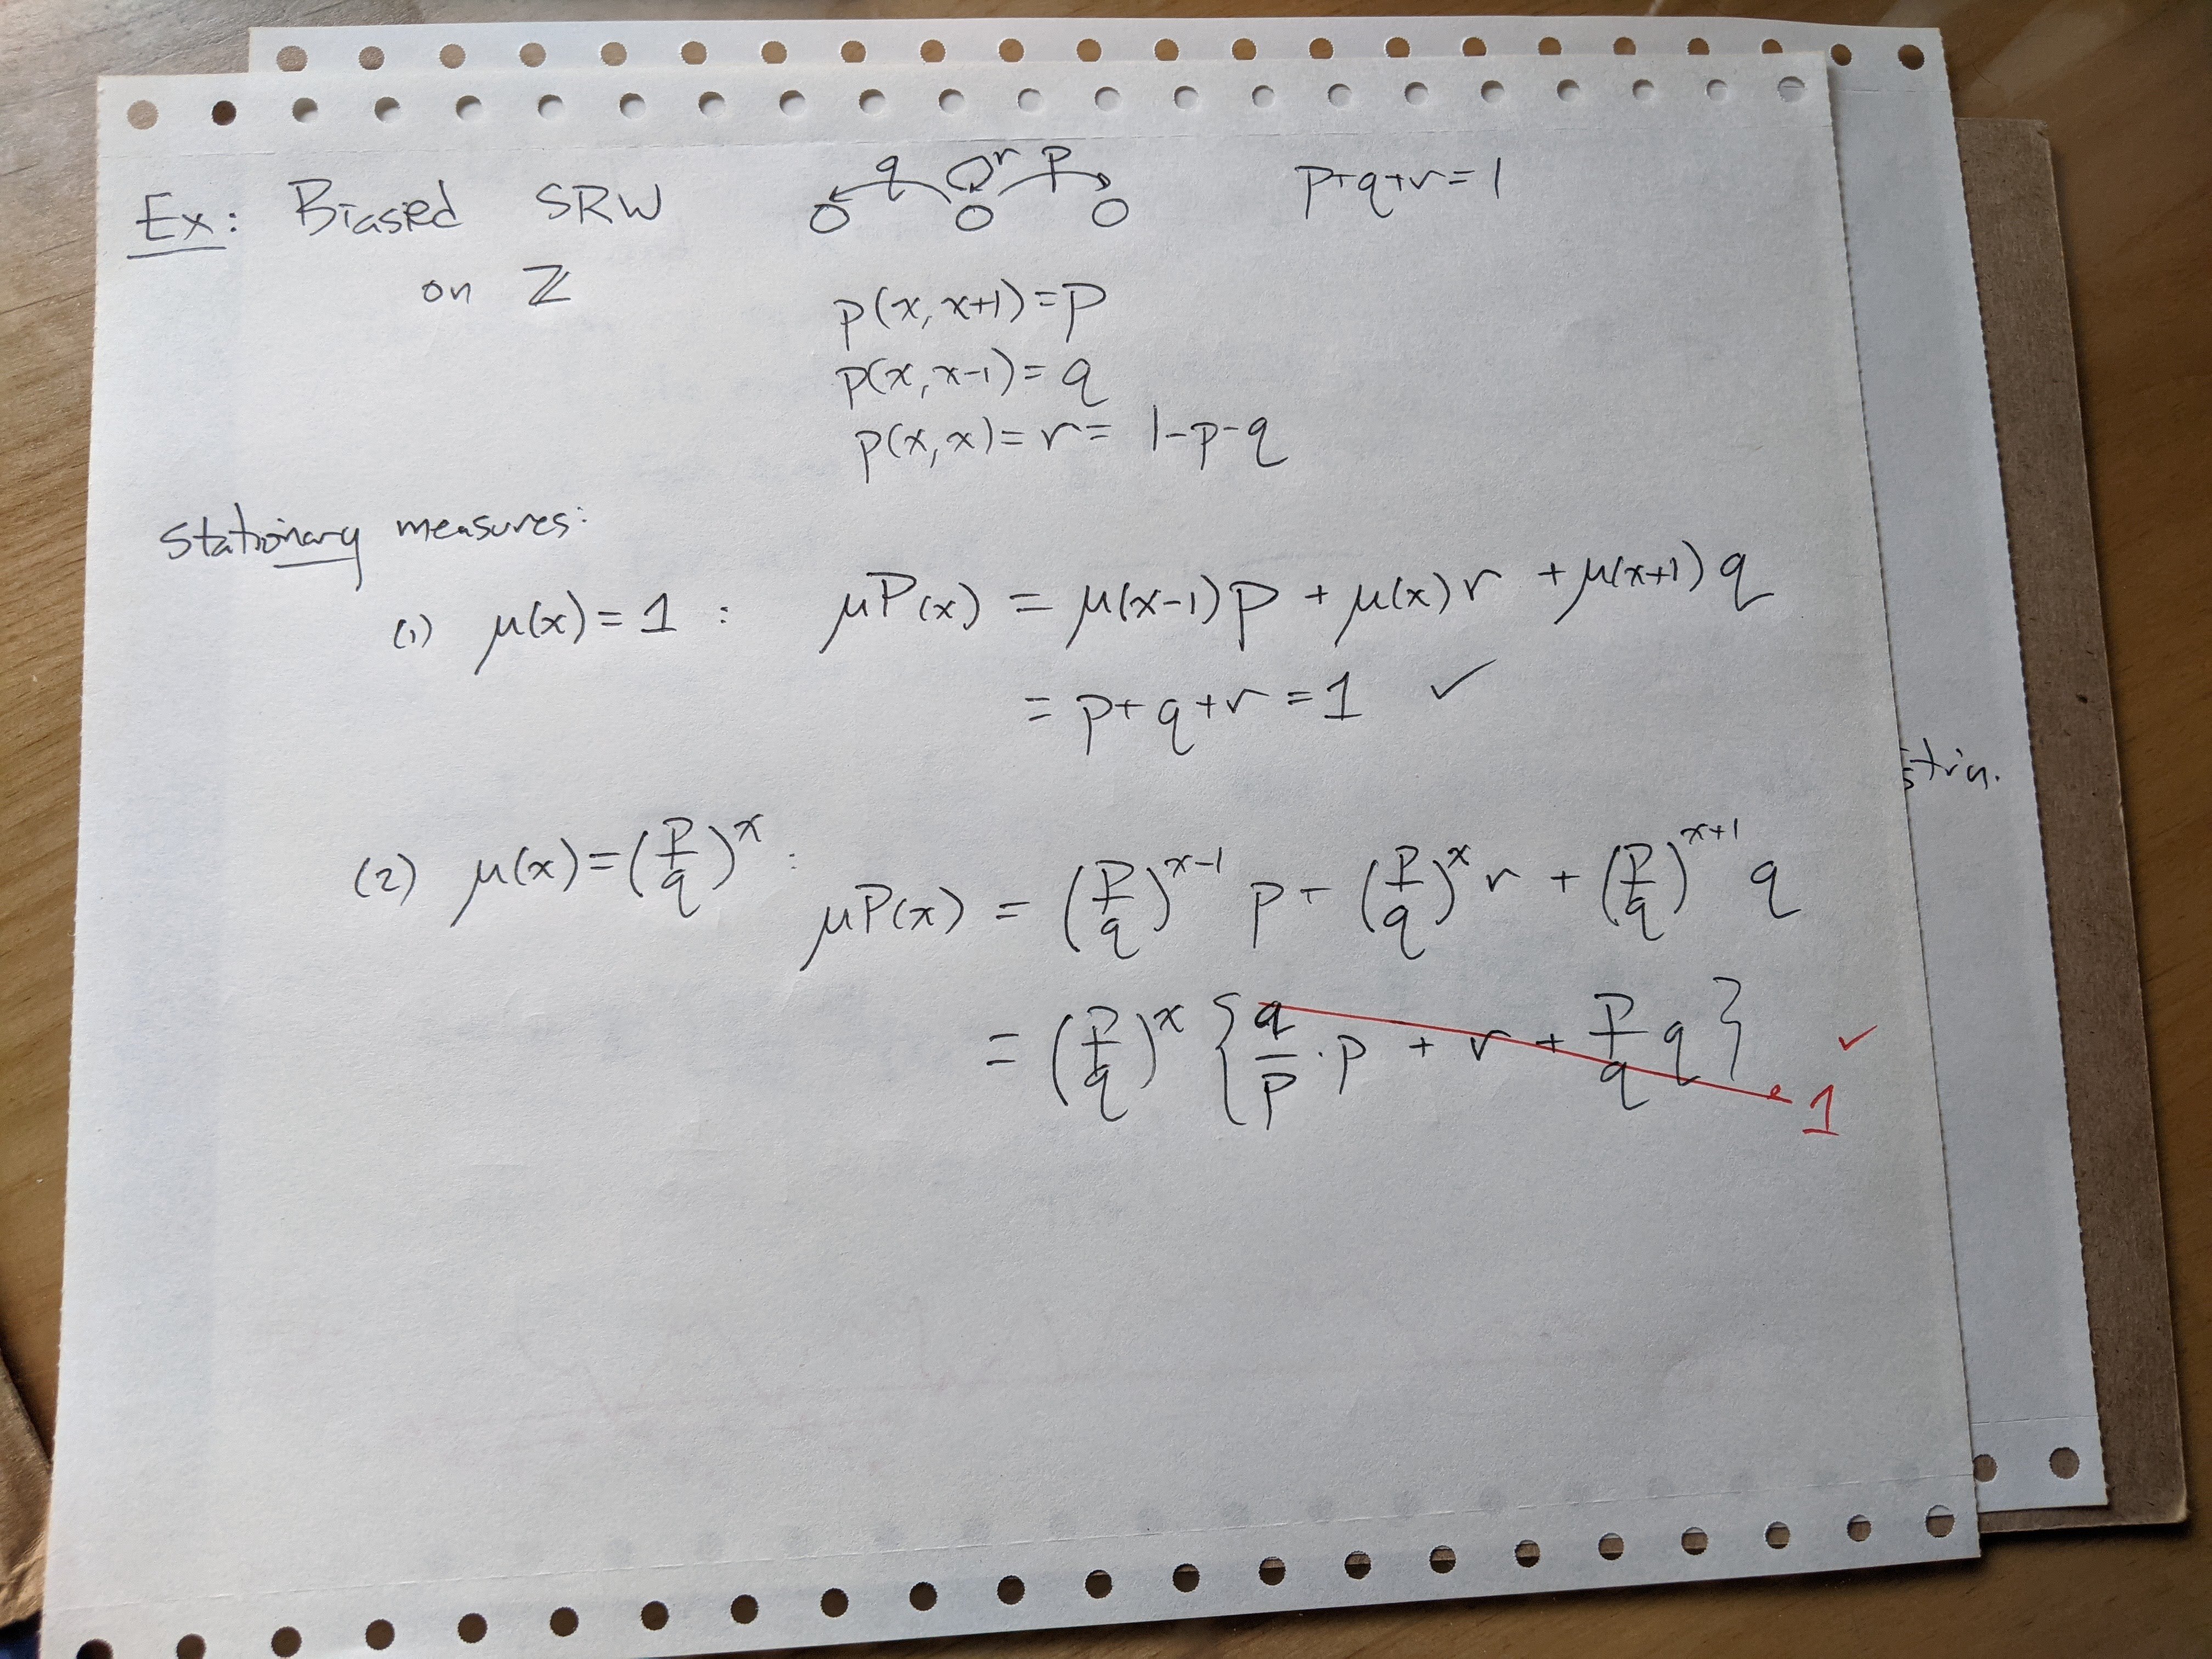 Ex: Biased SRW on ℤ
q r p
p+q+r=1
p(x,x+1)=p
p(x,x-1)=q
p(x,x)=r=1-p-q
Stationary measures:
(1) μ(x)=1: μP(x) = μ(x-1)p + μ(x)r + μ(x+1)q
= p+q+r=1 ✓
(2) μ(x)=(p/q)^x: μP(x) = (p/q)^{x-1} p + (p/q)^x r + (p/q)^{x+1} q
= (p/q)^x {q/p · p + r + p/q q} 1 ✓